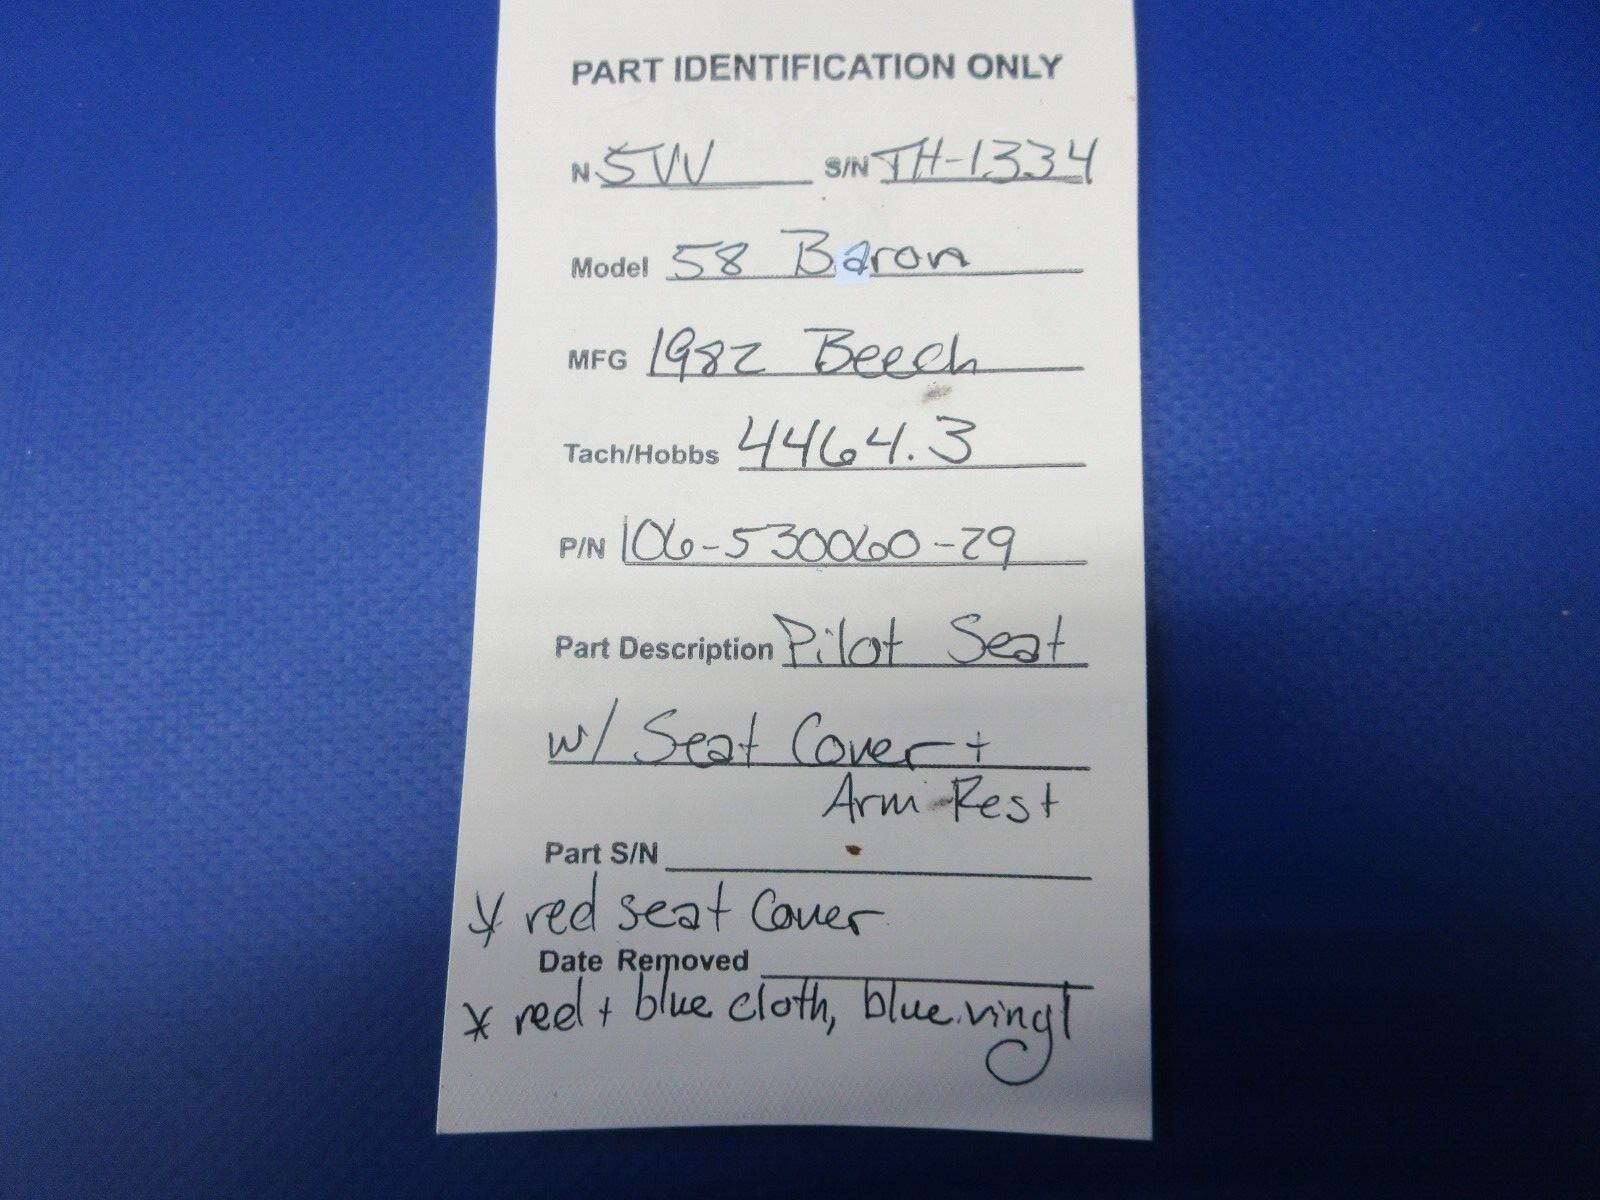 PART IDENTIFICATION ONLY
N 5VV S/N TH-1334
Model 58 Baron
MFG 1982 Beech
Tach/Hobbs 4464.3
P/N 106-530060-29
Part Description Pilot Seat
w/ Seat Cover +
Arm Rest
Part S/N
* red seat cover
Date Removed
* red + blue cloth, blue vinyl